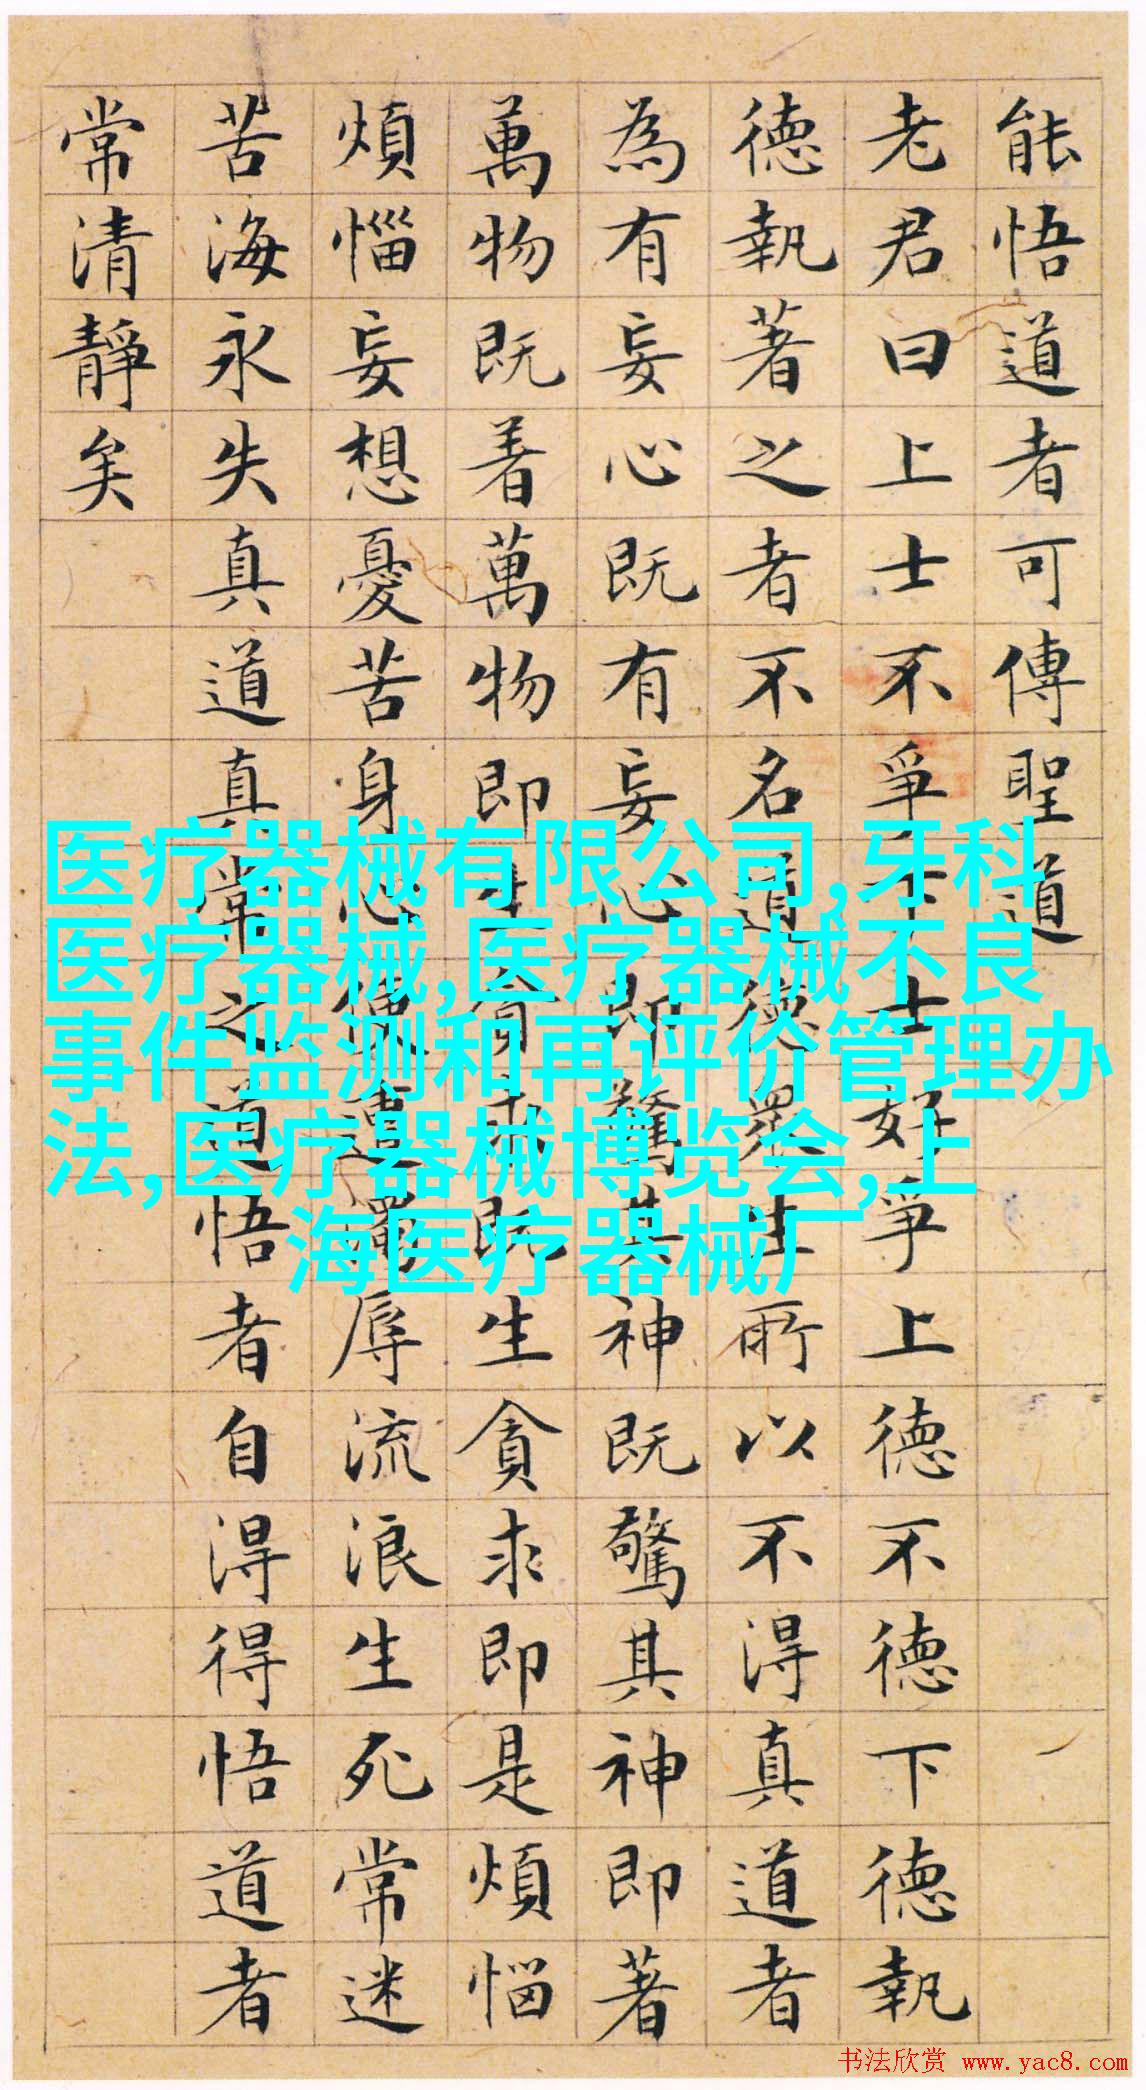 能悟道者可傳聖道
老君曰上士不爭下士好爭上德不德下德執
德執著之者不名道德眾生所以不得真道者
為有妄心既有妄心即驚其神既驚其神即著
萬物既着萬物即生貪求既生貪求即是煩惱
煩惱妄想憂苦身心便遭濁辱流浪生死常迷
苦海永失真道真常之道悟者自得得悟道者
常清靜矣
医疗器械有限公司,牙科
医疗器械,医疗器械不良
事件监测和再评价管理办
法,医疗器械博览会,上
海医疗器械厂
书法欣赏 www.yac8.com